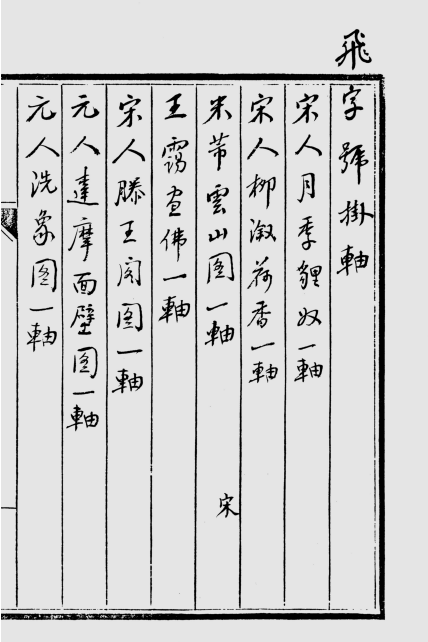 飛
字號掛軸
宋人月季貍奴一軸
宋人柳溆荷香一軸
米芾雲山图一軸 宋
王靄画佛一軸
宋人滕王阁图一軸
元人達摩面壁图一軸
元人洗象图一軸